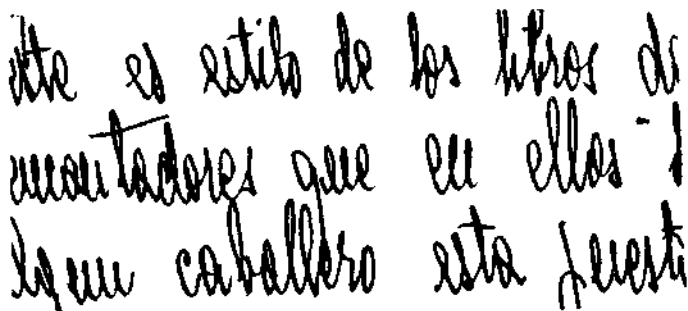 ste es estilo de los libros d
encantadores que en ellos
lgun caballero esta puest